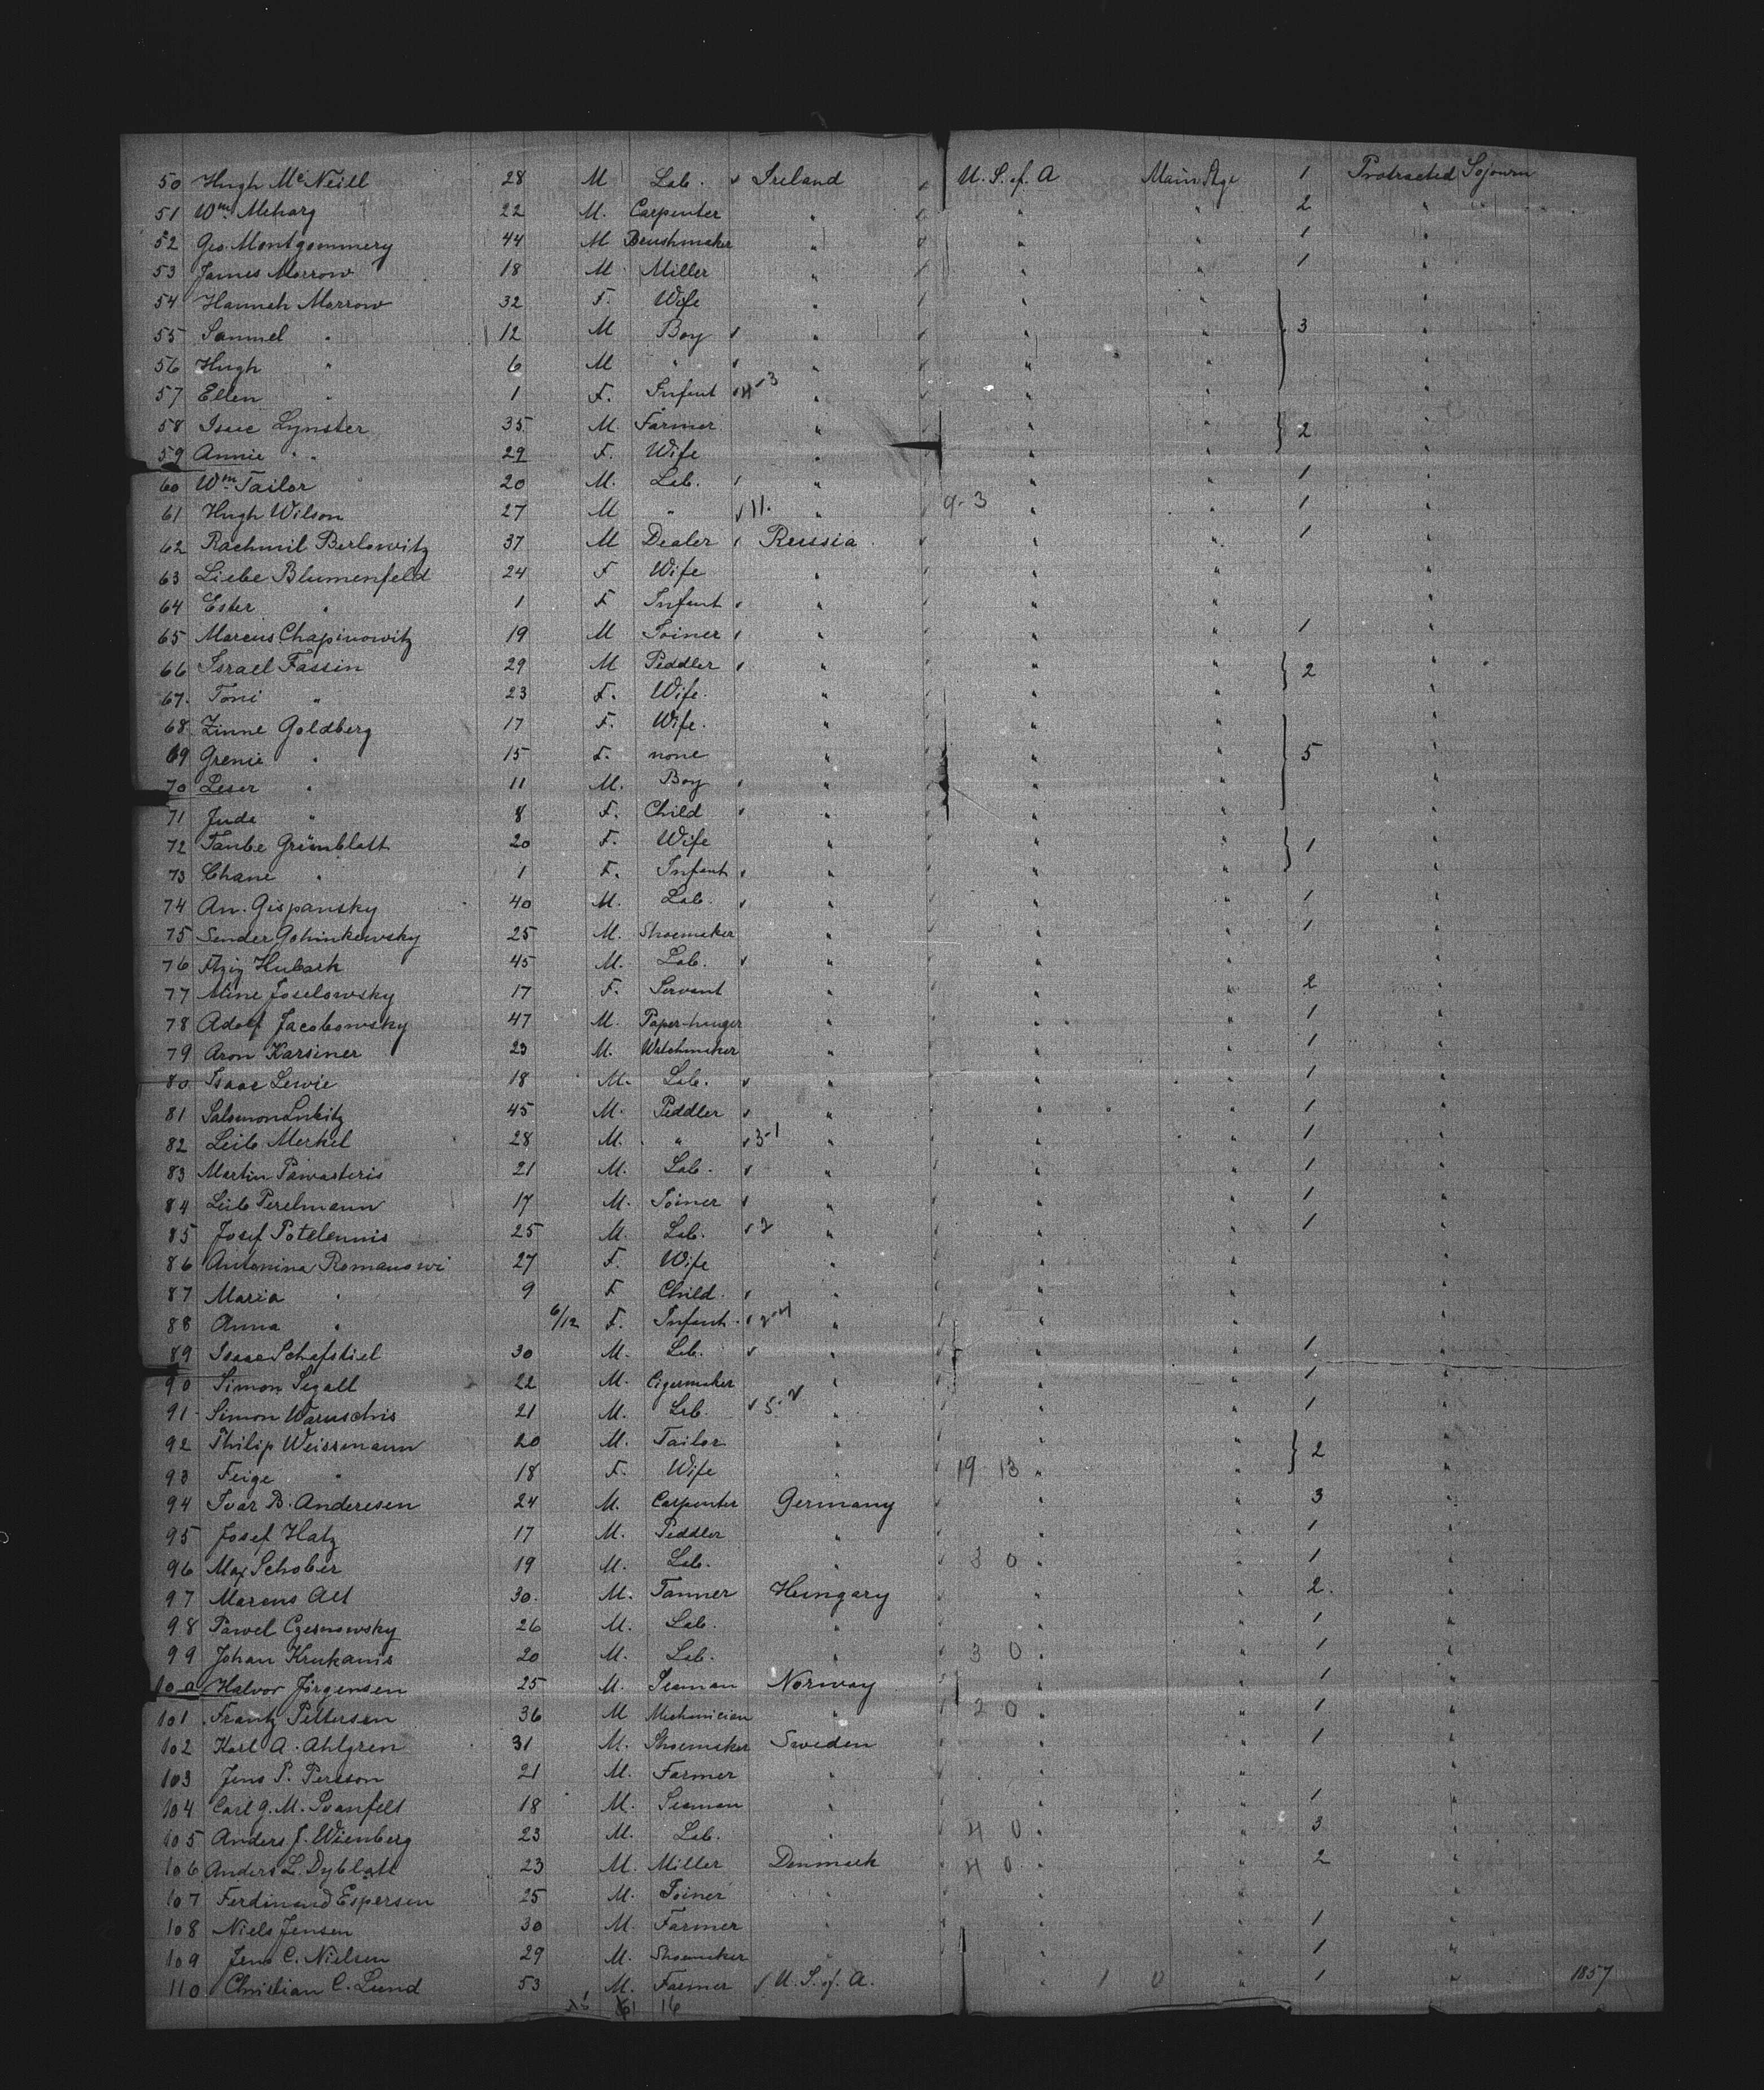 50 Hugh McNeill 28 M Lab. Ireland U.S. of A Main Dge 1 Protracted Sojourn
51 Wm Meharg 22 M. Carpenter " " " 2 "
52 Geo. Montgommery 44 M Brushmaker " " " 1 "
53 James Morrow 18 M Miller " " " 1 "
54 Hannah Morrow 32 F. Wife " " " "
55 Samuel " 12 M Boy " " " 3 "
56 Hugh " 6 M " " " " "
57 Ellen " 1 F. Infant " " " "
58 Isaac Lynster 35 M. Farmer " " " 2 "
59 Annie " 29 F. Wife " " " "
60 Wm Tailor 20 M. Lab. " " " 1 "
61 Hugh Wilson 27 M " 11. " 9-3 " " 1 "
62 Rachmil Berlowitz 37 M Dealer Russia " " 1 "
63 Liebe Blumenfeld 24 F Wife " " " "
64 Ester " 1 F Infant " " " "
65 Marcus Chapinowitz 19 M Joiner " " " 1 "
66 Israel Fassin 29 M Peddler " " " 2 "
67. Toni " 23 F. Wife. " " " "
68 Zinne Goldberg 17 F. Wife. " " " "
69 Grenie " 15 F. none " " " 5 "
70 Leser " 11 M. Boy " " " "
71 Jude " 8 F. Child " " " "
72 Taube Grünblatt 20 F. Wife " " " 1 "
73 Chane " 1 F. Infant " " " "
74 An. Gispansky 40 M. Lab. " " " 1 "
75 Sender Gohinkowsky 25 M. Shoemaker " " " 1 "
76 Hubark 45 M. Lab. " " " "
77 Mine Joselowsky 17 F. Servant " " " 2 "
78 Adolf Jacobowsky 47 M. Paper-hanger " " " 1 "
79 Aron Karsiner 23 M. Watchmaker " " " 1 "
80 Isaac Lewie 18 M. Lab. " " " 1 "
81 Salomon Lukitz 45 M. Peddler " " " 1 "
82 Leib Merkel 28 M. " 3-1 " " " 1 "
83 Martin Pawasteris 21 M. Lab. " " " 1 "
84 Leib Perelmann 17 M. Joiner " " " 1 "
85 Josef Potelennis 25 M. Lab. " " " 1 "
86 Antonina Romanowi 27 F. Wife " " " "
87 Maria " 9 F Child. " " " "
88 Anna " 6/12 F. Infant. " " " "
89 Isaac Schafstiel 30 M. Lab. " " " 1 "
90 Simon Segall 22 M. Cigarmaker " " " 1 "
91 Simon Waruschis 21 M. Lab. " " " 1 "
92 Philip Weissmann 20 M. Tailor " " " 2 "
93 Feige " 18 F. Wife " 19 13 " " "
94 Ivar B. Anderesen 24 M. Carpenter Germany " " 3 "
95 Josef Hatz 17 M. Peddler " " " 1 "
96 Max Schober 19 M. Lab. " 3 0 " " 1 "
97 Marcus Alt 30. M. Tanner Hungary " " 2. "
98 Pawel Czernowsky 26 M. Lab. " " " 1 "
99 Johan Krukanis 20 M. Lab. " 3 0 " " 1 "
100 Halvor Jörgensen 25 M. Seaman Norway " " 1 "
101 Frantz Pettersen 36 M Mechanician " 2 0 " " 1 "
102 Karl A. Ahlgren 31 M. Shoemaker Sweden " " 1 "
103 Jens P. Persson 21 M. Farmer " " " "
104 Carl G. M. Svanfelt 18 M. Seaman " " " 1 "
105 Anders J. Wienberg 23 M. Lab. " 4 0 " " 3 "
106 Anders L. Dyblatt 23 M. Miller Denmark 4 0 " " 2 "
107 Ferdinand Espersen 25 M. Joiner " " " "
108 Niels Jensen 30 M. Farmer " " " 1 "
109 Jens C. Nielsen 29 M. Shoemaker " " " 1 "
110 Christian C. Lund 53 M. Farmer U.S. of A. " 1 0 " 1 " 1857
61 16